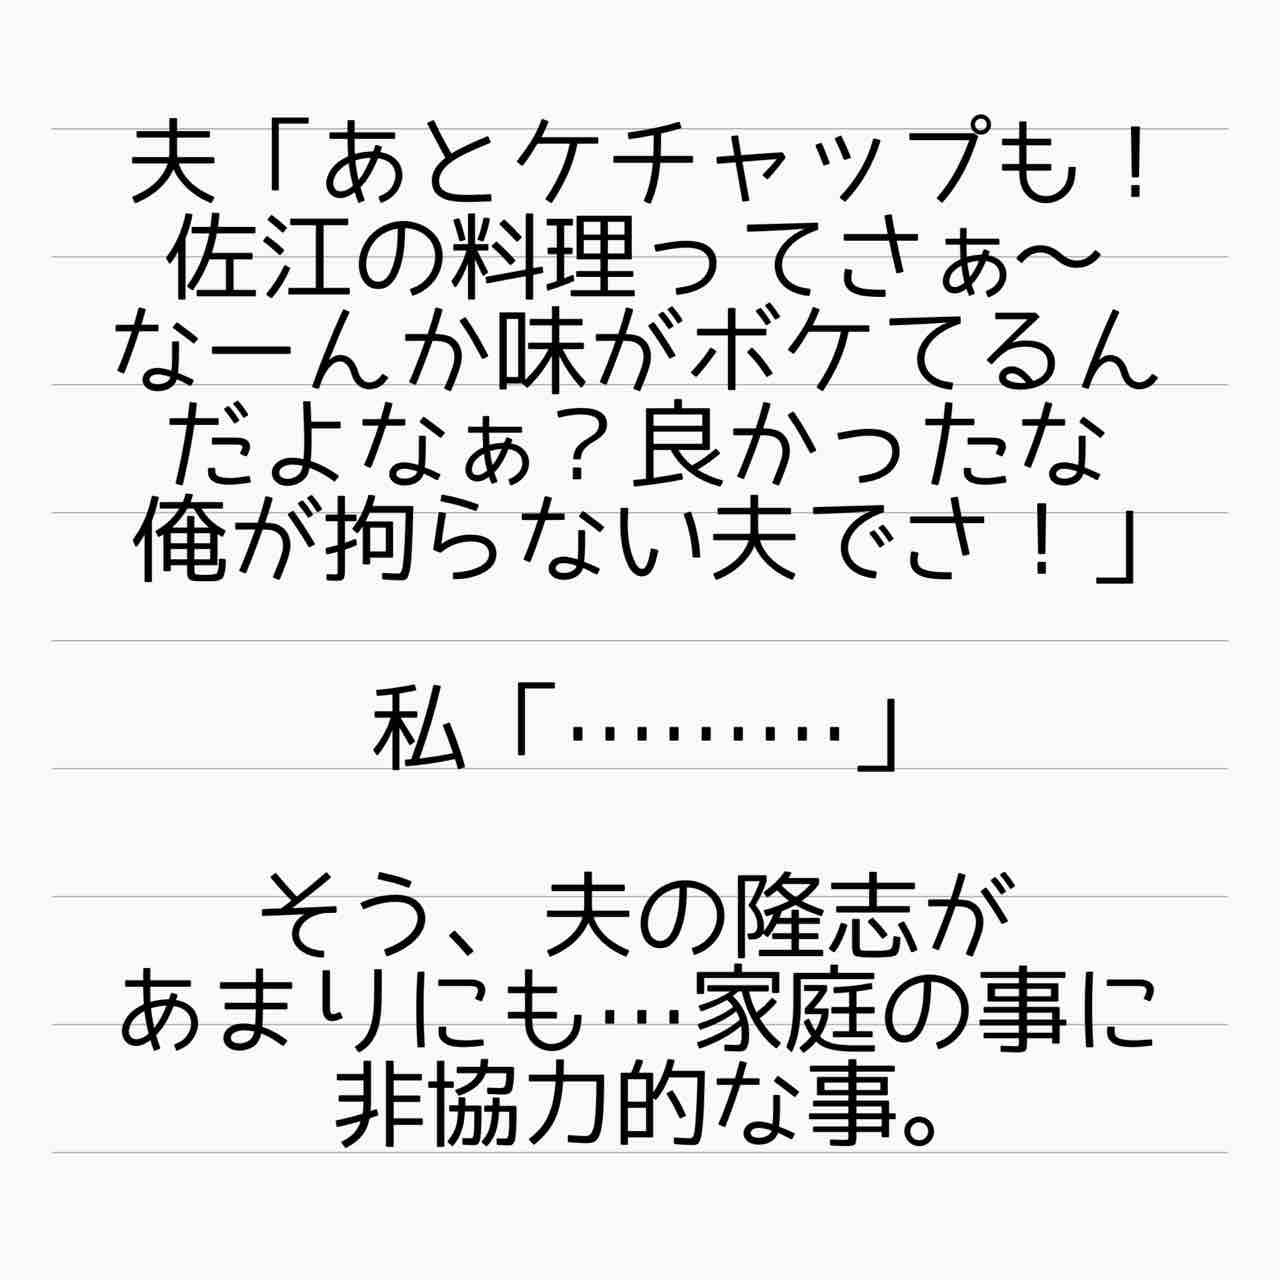 夫「あとケチャップも！
佐江の料理ってさぁ〜
なーんか味がボケてるん
だよなぁ？良かったな
俺が拘らない夫でさ！」
私「………」
そう、夫の隆志が
あまりにも…家庭の事に
非協力的な事。